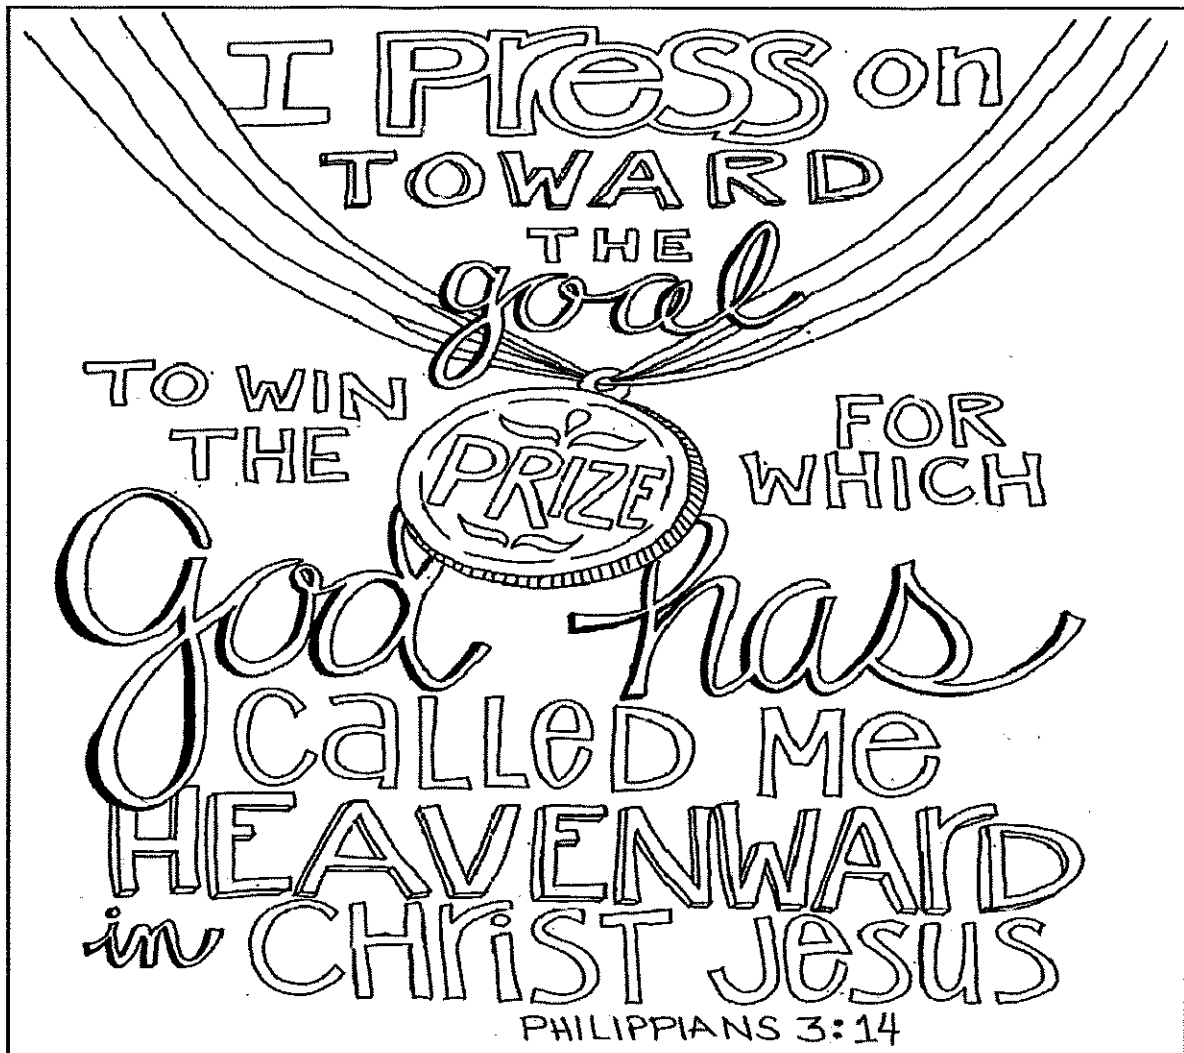 I Press on
TOWARD
THE
goal
TO WIN
THE
PRIZE
FOR
WHICH
God has
caLLeD Me
HEAVENWArD
in CHriST Jesus
PHILIPPIANS 3:14